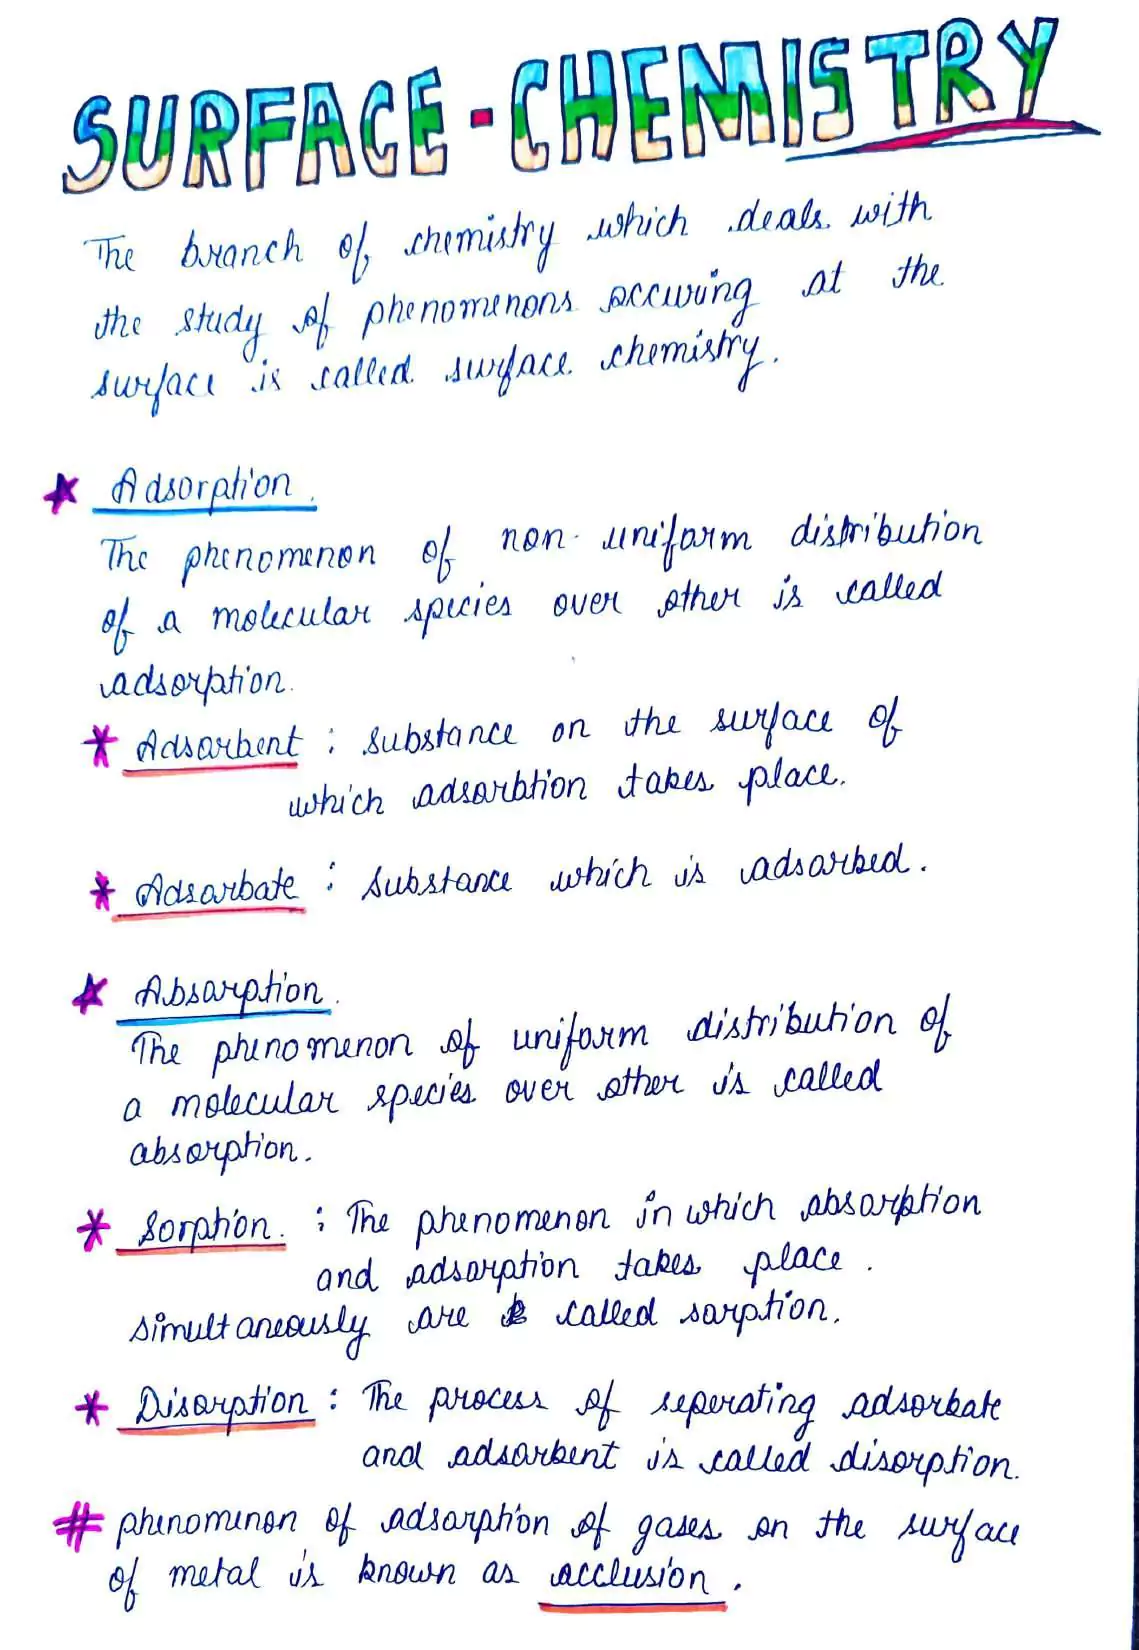 SURFACE-CHEMISTRY
The branch of chemistry which deals with
the study of phenomenons occuring at the
surface is called surface chemistry.
Adsorption.
The phenomenon of non-uniform distribution
of a molecular species over other is called
adsorption.
* Adsorbent : substance on the surface of
which adsorbtion takes place.
* Adsorbate : substance which is adsorbed.
Absorption.
The phenomenon of uniform distribution of
a molecular species over other is called
absorption.
* Sorption. : The phenomenon in which absorption
and adsorption takes place.
simultaneously are called sorption.
* Disorption : The process of seperating adsorbate
and adsorbent is called disorption.
# phenomenon of adsorption of gases on the surface
of metal is known as occlusion.